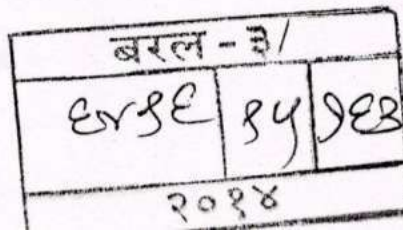 बरल - ३/
६४१६ १५ १६३
२०१४